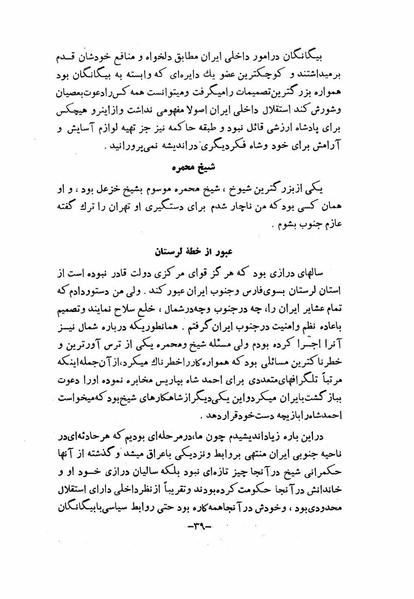 بیگانگان درامور داخلی ایران مطابق دلخواه و منافع خودشان قدم
برمیداشتند و کوچکترین عضو یك دایره‌ای که وابسته به بیگانگان بود
همواره بزرگترین تصمیمات رامیگرفت ومیتوانست همه کس رادعوت بعصیان
وشورش کند استقلال داخلی ایران اصولا مفهومی نداشت وازاینرو هیچکس
برای پادشاه ارزشی قائل نبود و طبقه حاکمه نیز جز تهیه لوازم آسایش و
آرامش برای خود وشاه فکردیگری دراندیشه نمی‌پرورانید.
شیخ محمره
یکی ازبزرگترین شیوخ ، شیخ محمره موسوم بشیخ خزعل بود ، و او
همان کسی بود که من ناچار شدم برای دستگیری او تهران را ترك گفته
عازم جنوب بشوم .
عبور از خطهٔ لرستان
سالهای درازی بود که هرگز قوای مرکزی دولت قادر نبوده است از
استان لرستان بسوی فارس وجنوب ایران عبور کند . ولی من دستوردادم که
تمام عشایر ایران را، چه درجنوب وچه درشمال ، خلع سلاح نمایند وتصمیم
باعاده نظم وامنیت درجنوب ایران گرفتم . همانطوریکه درباره شمال نیز
آنرا اجرا کرده بودم ولی مسئله شیخ ومحمره یکی از ترس آورترین و
خطرناکترین مسائلی بود که همواره کاررا خطرناك میکرد، ازآن جمله اینکه
مرتباً تلگرافهای متعددی برای احمد شاه بپاریس مخابره نموده اورا دعوت
ببازگشت بایران میکردواین یکی دیگرازشاهکارهای شیخ بود که میخواست
احمدشاه رابازیچه دست خودقراردهد .
دراین باره زیاداندیشیدم چون ما، درمرحله‌ای بودیم که هرحادثه‌ای در
ناحیه جنوبی ایران منتهی بروابط ونزدیکی باعراق میشد وگذشته از آنها
حکمرانی شیخ درآنجا چیز تازه‌ای نبود بلکه سالیان درازی خود او و
خاندانش درآنجا حکومت کرده بودند وتقریباً ازنظر داخلی دارای استقلال
محدودی بود ، وخودش درآنجا همه کاره بود حتی روابط سیاسی با بیگانگان
-۳۹-